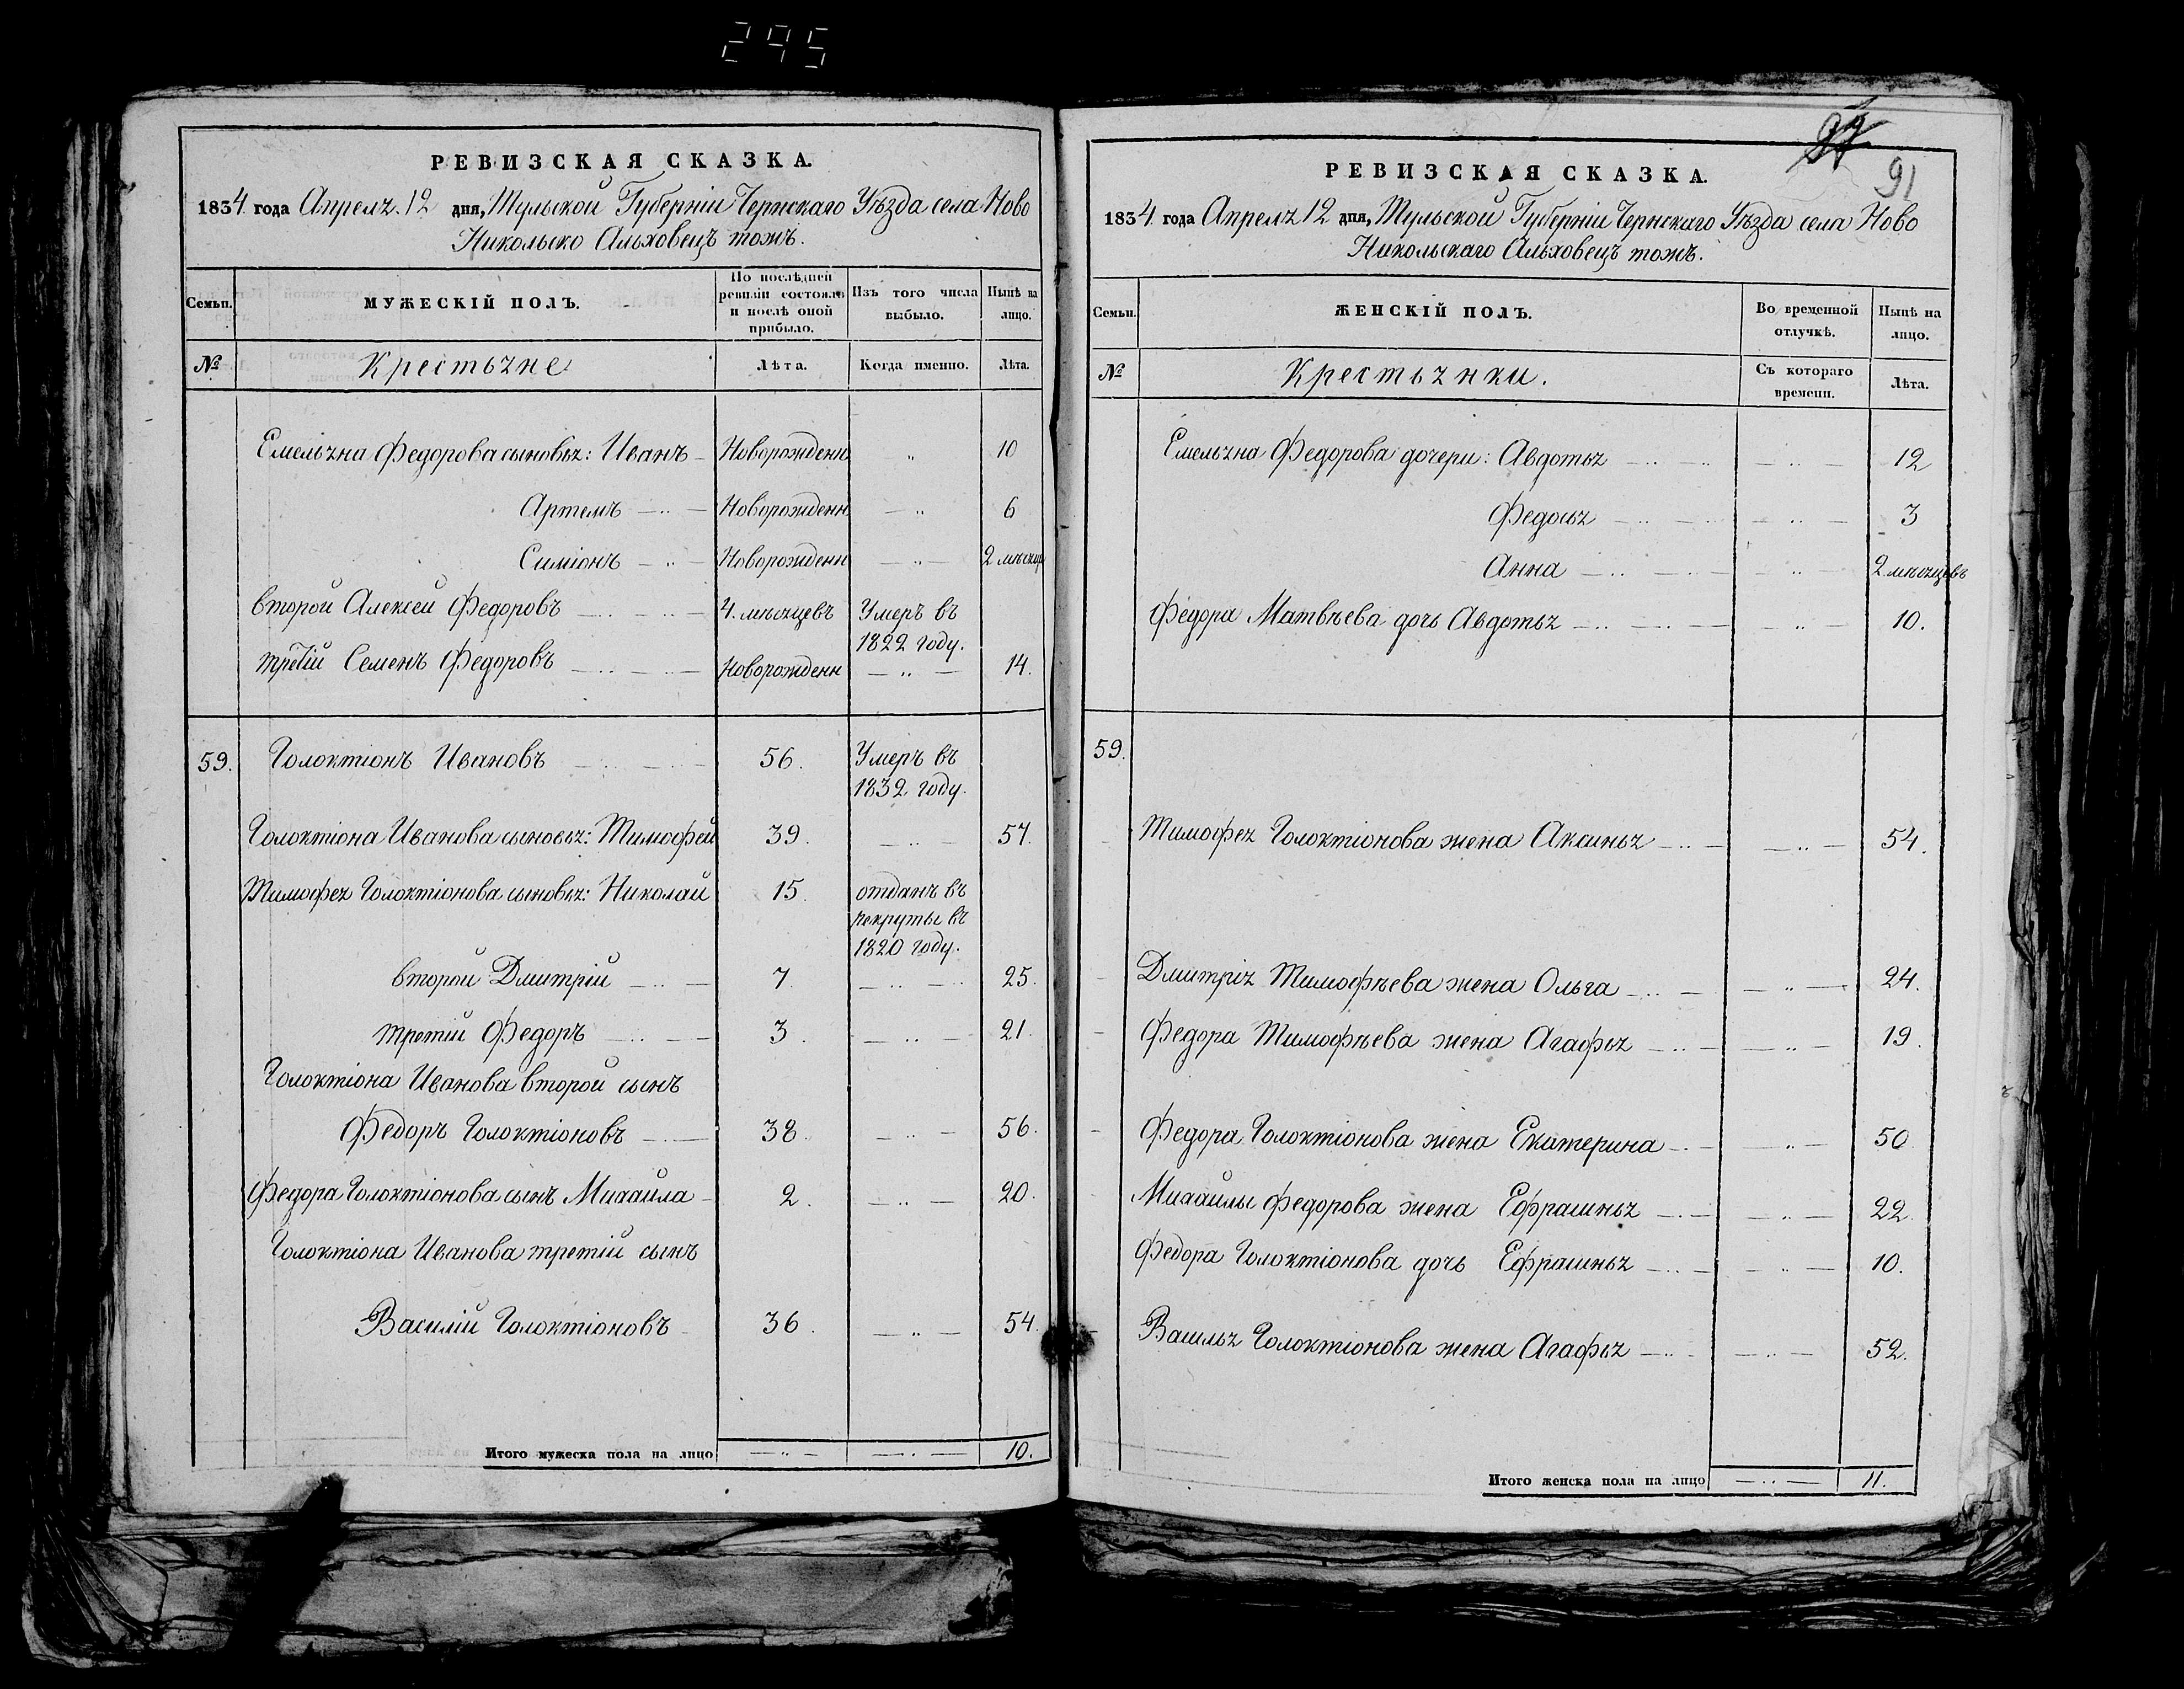 295
РЕВИЗСКАЯ СКАЗКА.
1834 года Апреля 12 дня, Тульской Губерніи Чернскаго Уѣзда села Ново
Никольско Альховецъ тожъ.
Семьи.
МУЖЕСКІЙ ПОЛЪ.
По послѣдней ревизіи состояло и послѣ оной прибыло.
Изъ того числа выбыло.
Нынѣ на лицо.
№ Крестьяне Лѣта. Когда именно. Лѣта.
Емельяна Федорова сыновья: Иванъ — Новорожденн „ 10
Артемъ — „ — Новорожденн — „ 6
Симіонъ — „ — Новорожденн — „ — 2 мѣсяца
второй Алексей Федоровъ — „ — 4. мѣсяцевъ Умеръ въ
1822 году.
третій Семенъ Федоровъ — „ — Новорожденн — „ — 14.
59. Голоктіонъ Ивановъ — 56. Умеръ въ
1832 году.
Голоктіона Иванова сыновья: Тимофей 39. — „ — 57.
Тимофея Голоктіонова сыновья: Николай 15. отданъ въ
рекруты въ
1820 году.
второй Дмитрій — „ — 7. — „ — 25.
третій Федоръ — „ — 3. — „ — 21.
Голоктіона Иванова второй сынъ
Федоръ Голоктіоновъ — „ — 38. — „ — 56.
Федора Голоктіонова сынъ Михайла — 2. — „ — 20.
Голоктіона Иванова третій сынъ
Василій Голоктіоновъ 36. — „ — 54.
Итого мужеска пола на лицо — „ — — „ — 10.
91
РЕВИЗСКАЯ СКАЗКА.
1834 года Апреля 12 дня, Тульской Губерніи Чернскаго Уѣзда села Ново
Никольскаго Альховецъ тожъ.
Семьи.
ЖЕНСКІЙ ПОЛЪ.
Во временной отлучкѣ.
Нынѣ на лицо.
№ Крестьянки. Съ котораго времени. Лѣта.
Емельяна Федорова дочери: Авдотья — „ — — „ — 12
Федосья — „ — — „ — 3
Анна — „ — — „ — 2 мѣсяцевъ
Федора Матвѣева дочь Авдотья — „ — — „ — 10.
59.
Тимофея Голоктіонова жена Аксинья — „ — — „ — 54.
Дмитрія Тимофѣева жена Ольга — „ — — „ — 24.
Федора Тимофѣева жена Агафья — „ — — „ — 19.
Федора Голоктіонова жена Екатерина — „ — „ — 50
Михайлы Федорова жена Ефрасинья — „ — — „ — 22.
Федора Голоктіонова дочь Ефрасинья — „ — — „ — 10.
Василья Голоктіонова жена Агафья — „ — — „ — 52.
Итого женска пола на лицо — „ — 11.